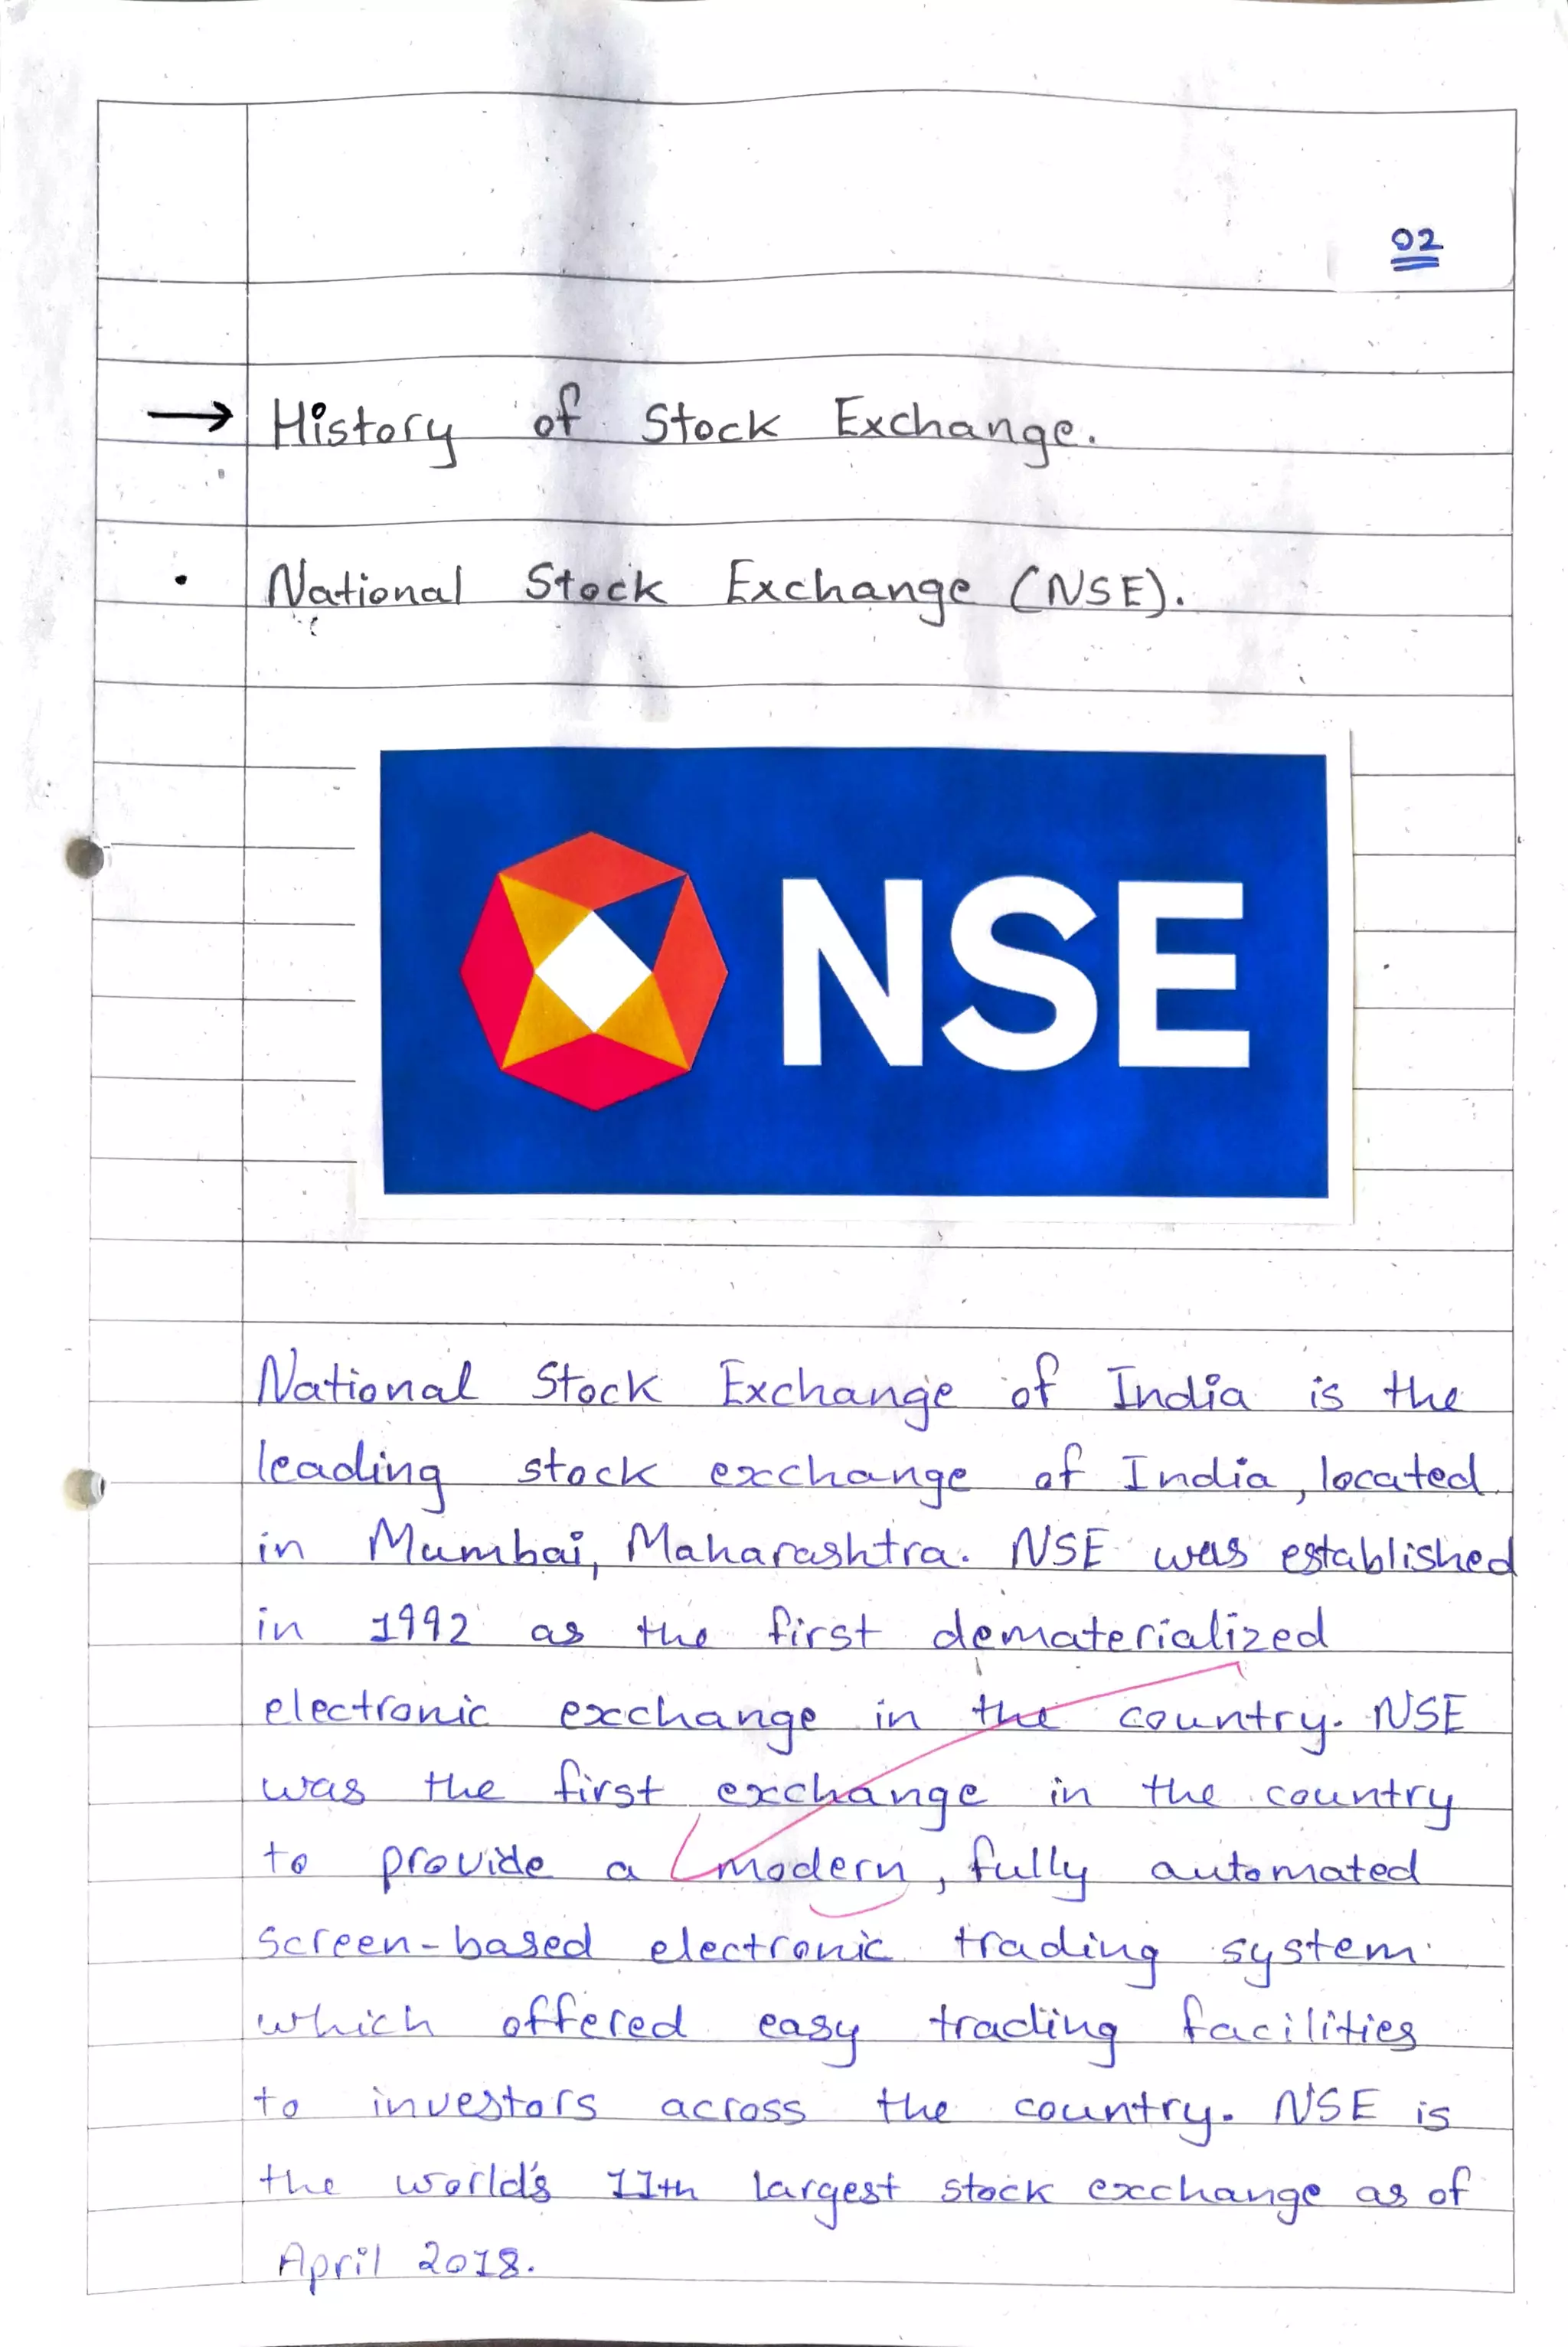 02
→ History of Stock Exchange.
• National Stock Exchange (NSE).
NSE
National Stock Exchange of India is the
leading stock exchange of India, located
in Mumbai, Maharashtra. NSE was established
in 1992 as the first dematerialized
electronic exchange in the country. NSE
was the first exchange in the country
to provide a modern, fully automated
screen-based electronic trading system
which offered easy trading facilities
to investors across the country. NSE is
the world's 11th largest stock exchange as of
April 2018.